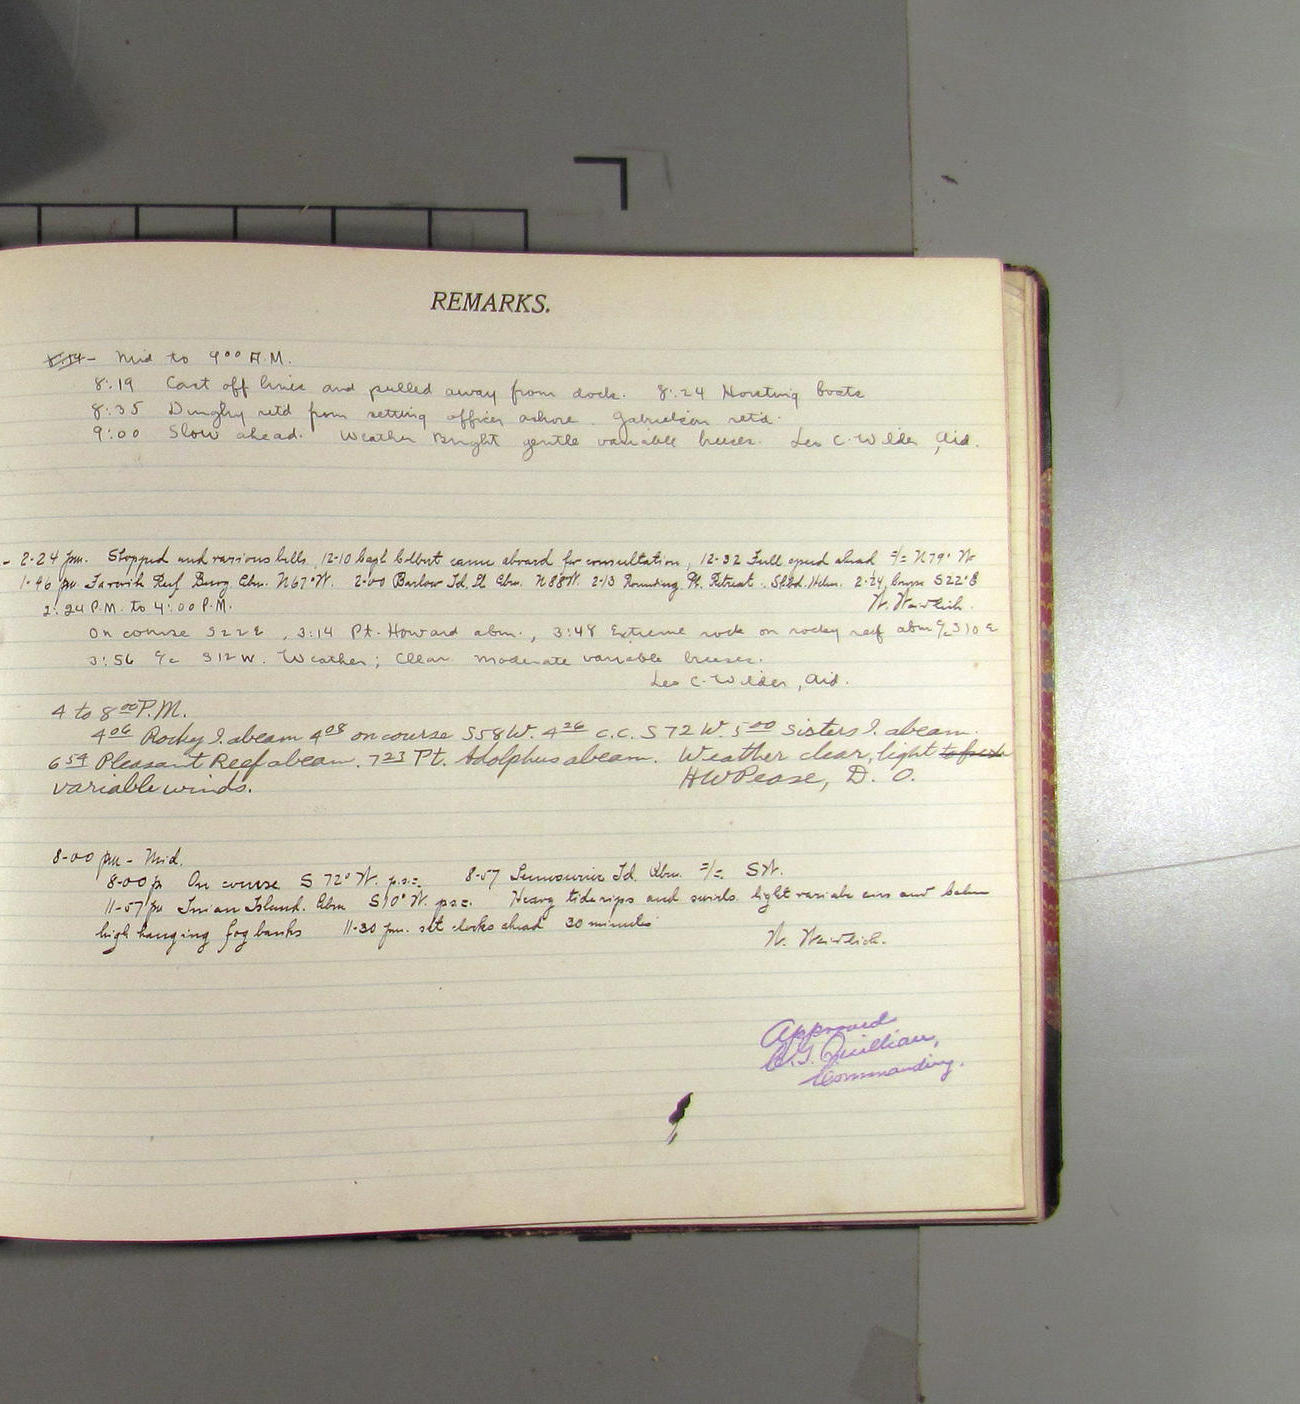 REMARKS.
Mid to 9⁰⁰ A.M.
8:19 Cast off lines and pulled away from dock. 8:24 Hoisting boats
8:35 Dinghy retd from setting officer ashore. Gabrielson retd.
9:00 Slow ahead. Weather Bright gentle variable breezes. Leo C. Wilder, Aid.
- 2-24 pm. Stopped and various bells, 12-10 Capt Colbert came aboard for consultation, 12-32 Full speed ahead c/c N79° W
1-46 pm Reef Buoy Abm. N67°W. 2-00 Barlow Id. Lt Abm. N88W. 2-13 Rounding Pt. Retreat. Stbd. Helm. 2-24, S22°E
2:24 P.M. to 4:00 P.M. W. Weidlich.
On course S22E, 3:14 Pt. Howard abm., 3:48 Extreme rock on rocky reef abm c/c S10E
3:56 c/c S12W. Weather; Clear moderate variable breezes.
Leo C. Wilder, Aid.
4 to 8⁰⁰ P.M.
4⁰⁶ Rocky I. abeam 4⁰⁸ on course S58W. 4²⁶ c.c. S72W. 5⁰⁰ Sisters I. abeam.
6⁵⁹ Pleasant Reef abeam. 7²³ Pt. Adolphus abeam. Weather clear, light to fresh
variable winds. HWPease, D. O.
8-00 pm - Mid.
8-00 p On course S 72° W. p.s.c. 8-57 Lemesurier Id. Abm. c/c SW.
11-57 pm Inian Island. Abm S10°W. p.s.c. Heavy tide rips and swirls. light variable airs and calm
high hanging fog banks 11-30 pm. set clocks ahead 30 minutes
W. Weidlich.
Approved
Quillian,
Commanding.